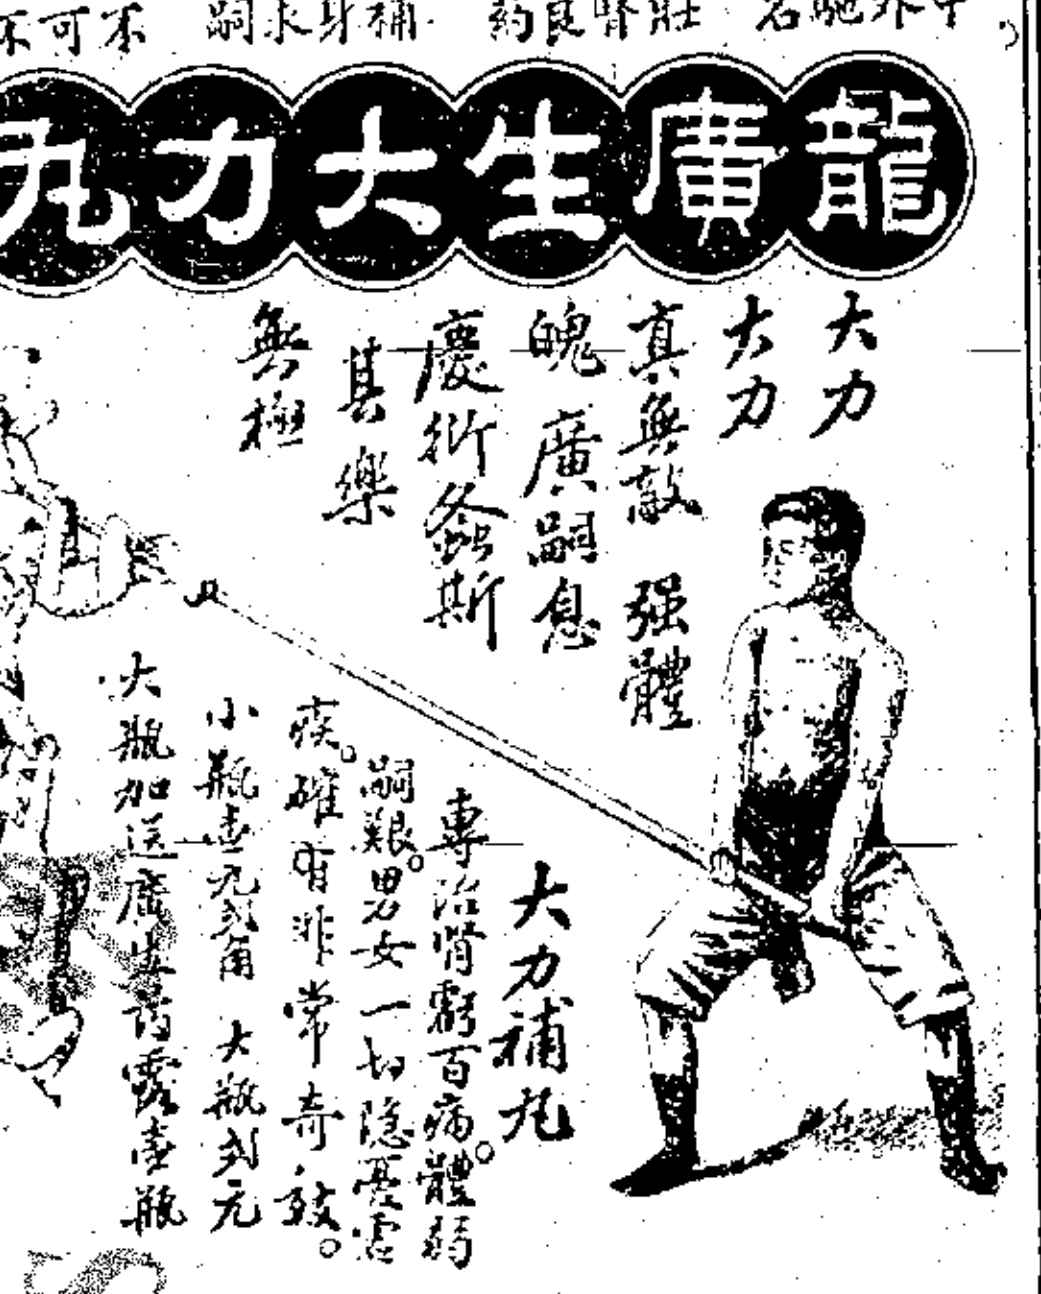 中外馳名
壯腎良药
補身求嗣
不可不
龍廣生大力丸
大力
大力
真無敵 强體
魄 廣嗣息
慶衍螽斯
其樂
無極
大力補丸
專治腎虧百病。體弱
嗣艱。男女一切隱憂害
疾。確有非常奇效。
小瓶壹元弍角 大瓶弍元
大瓶加送廣生药露壹瓶